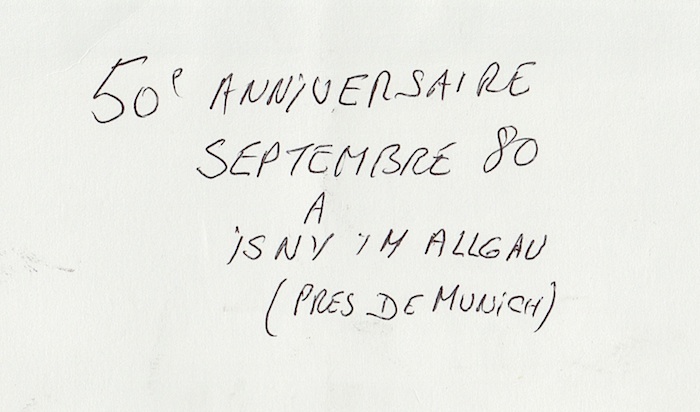 50e ANNIVERSAIRE
SEPTEMBRE 80
A
iSNY iM ALLGAU
(PRES DE MUNiCH)